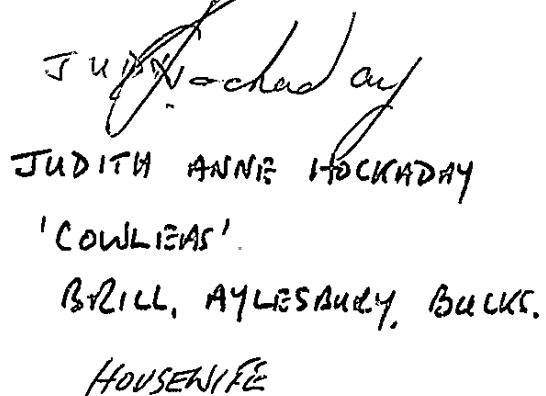 JUDITH ANNE HOCKADAY
'COWLEAS'.
BRILL, AYLESBURY, BUCKS.
HOUSEWIFE